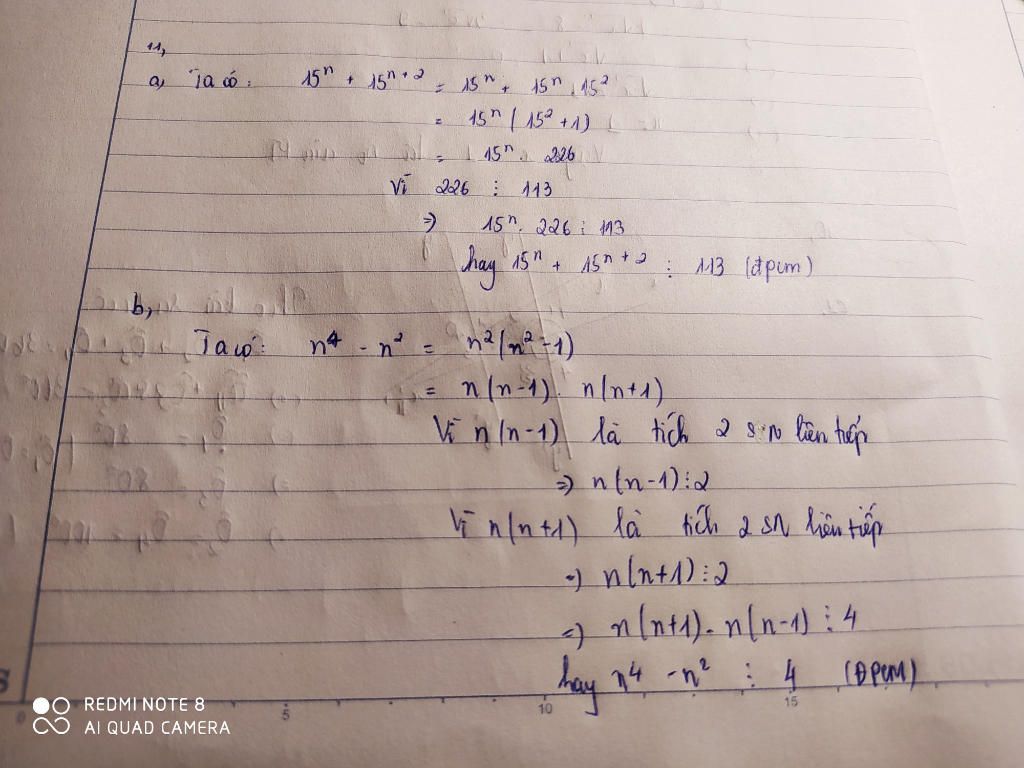 11,
a, Ta có: 15ⁿ + 15ⁿ⁺² = 15ⁿ + 15ⁿ . 15²
= 15ⁿ ( 15² + 1)
= 15ⁿ . 226
Vì 226 ⋮ 113
=> 15ⁿ . 226 ⋮ 113
hay 15ⁿ + 15ⁿ⁺² ⋮ 113 (đpcm)
b,
Ta có: n⁴ - n² = n²(n² - 1)
= n(n-1) . n(n+1)
Vì n(n-1) là tích 2 sn liên tiếp
=> n(n-1) ⋮ 2
Vì n(n+1) là tích 2 sn liên tiếp
=> n(n+1) ⋮ 2
=> n(n+1) . n(n-1) ⋮ 4
hay n⁴ - n² ⋮ 4 (ĐPCM)
0 5 10 15
REDMI NOTE 8
AI QUAD CAMERA